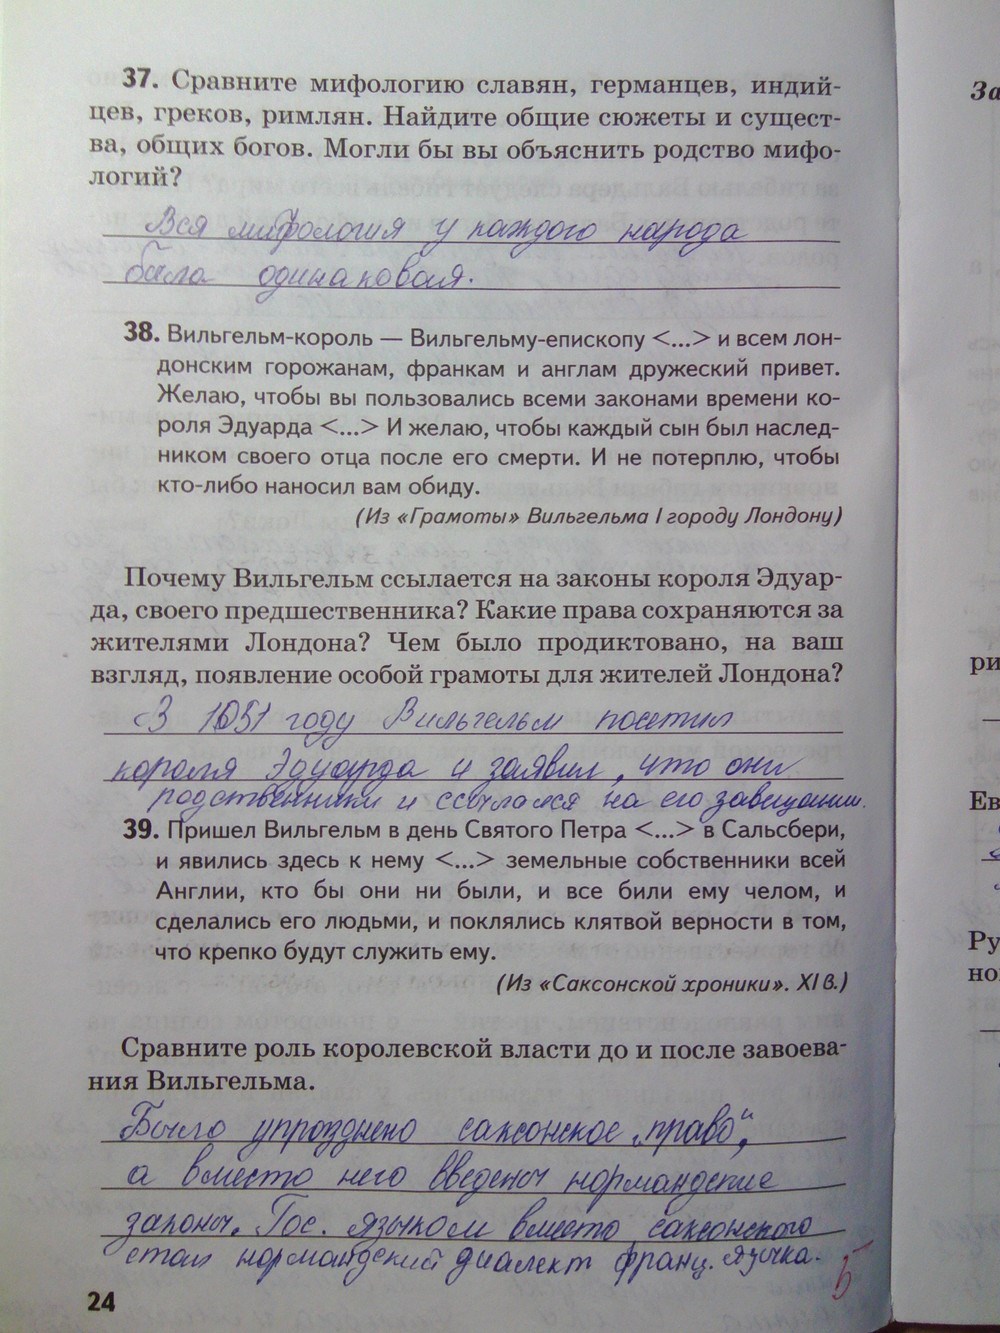 37. Сравните мифологию славян, германцев, индий-
цев, греков, римлян. Найдите общие сюжеты и сущест-
ва, общих богов. Могли бы вы объяснить родство мифо-
логий?
Вся мифология у каждого народа
была одинаковая.
38. Вильгельм-король — Вильгельму-епископу <...> и всем лон-
донским горожанам, франкам и англам дружеский привет.
Желаю, чтобы вы пользовались всеми законами времени ко-
роля Эдуарда <...> И желаю, чтобы каждый сын был наслед-
ником своего отца после его смерти. И не потерплю, чтобы
кто-либо наносил вам обиду.
(Из «Грамоты» Вильгельма I городу Лондону)
Почему Вильгельм ссылается на законы короля Эдуар-
да, своего предшественника? Какие права сохраняются за
жителями Лондона? Чем было продиктовано, на ваш
взгляд, появление особой грамоты для жителей Лондона?
В 1051 году Вильгельм посетил
короля Эдуарда и заявил, что они
родственники и ссылался на его завещании.
39. Пришел Вильгельм в день Святого Петра <...> в Сальсбери,
и явились здесь к нему <...> земельные собственники всей
Англии, кто бы они ни были, и все били ему челом, и
сделались его людьми, и поклялись клятвой верности в том,
что крепко будут служить ему.
(Из «Саксонской хроники». XI в.)
Сравните роль королевской власти до и после завоева-
ния Вильгельма.
Было упразднено саксонское „право",
а вместо него введены нормандские
законы. Гос. языком вместо саксонского
стал нормандский диалект франц. языка.
5
24
За
ри
Ев
Ру
но